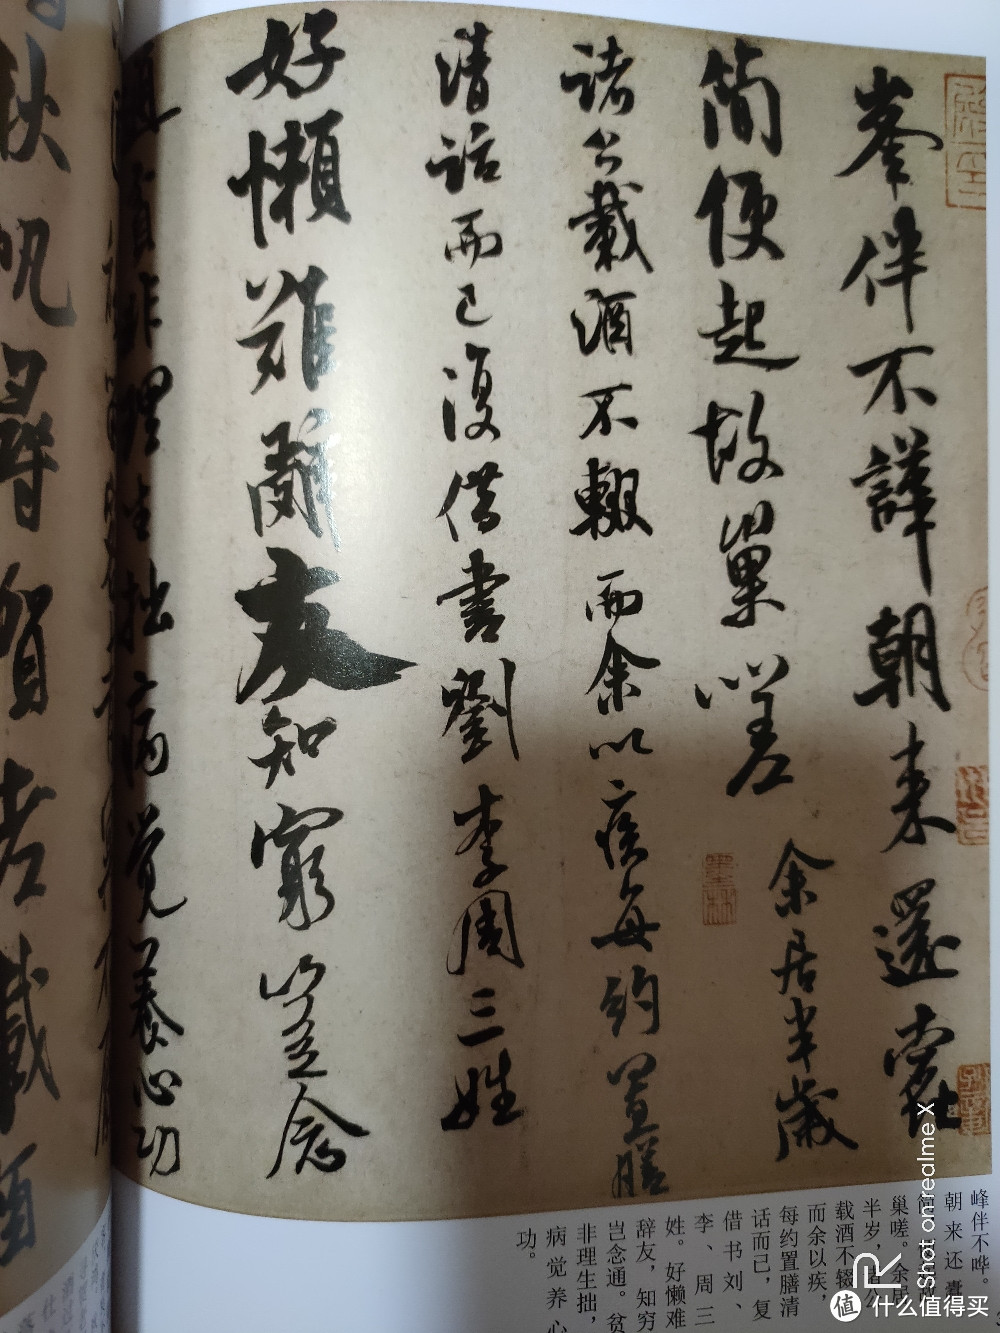 峯伴不譁朝来還蠹
簡便起故巢嗟 余居半歲
諸公載酒不輟而余以疾每約置膳
清話而已復借書劉李周三姓
好懶難辭友知窮豈念
通貧非理生拙病覺養心功
秋帆尋賀老載酒
峰伴不哗。
朝来还蠹
巢嗟。余居
半岁，诸公
载酒不辍
而余以疾，
每约置膳清
话而已，复
借书刘、
李、周三
姓。好懒难
辞友，知穷
岂念通。贫
非理生拙，
病觉养心
功。
Shot on realme X
值 什么值得买